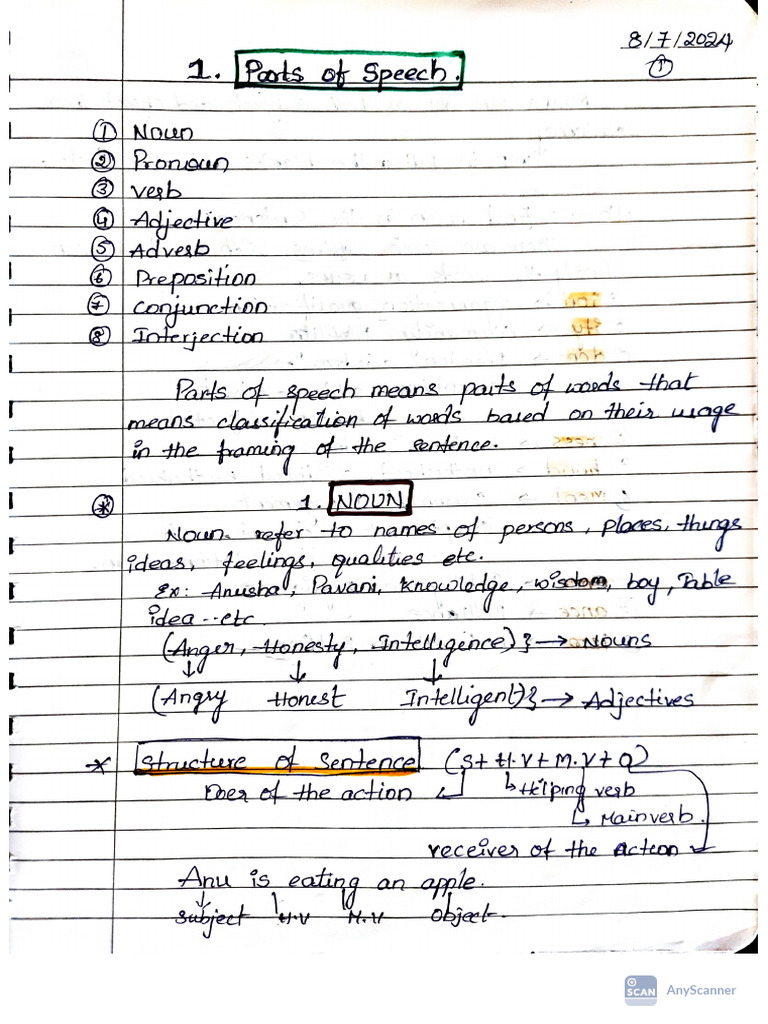 8/7/2024
①
1. Parts of Speech.
① Noun
② Pronoun
③ verb
④ Adjective
⑤ Adverb
⑥ Preposition
⑦ conjunction
⑧ Interjection
Parts of speech means parts of words that
means classification of words based on their usage
in the framing of the sentence.
* 1. NOUN
Noun refer to names of persons, places, things
ideas, feelings, qualities etc.
Ex: Anusha, Pavani, knowledge, wisdom, boy, Table
idea..etc
(Anger, Honesty, Intelligence)} → Nouns
↓ ↓ ↓
(Angry Honest Intelligent)} → Adjectives
* Structure of Sentence (S+H.V+M.V+O)
Doer of the action ↲ ↳ Helping verb
↳ Main verb.
receiver of the action ↲
Anu is eating an apple.
subject H.V M.V Object.
SCAN AnyScanner